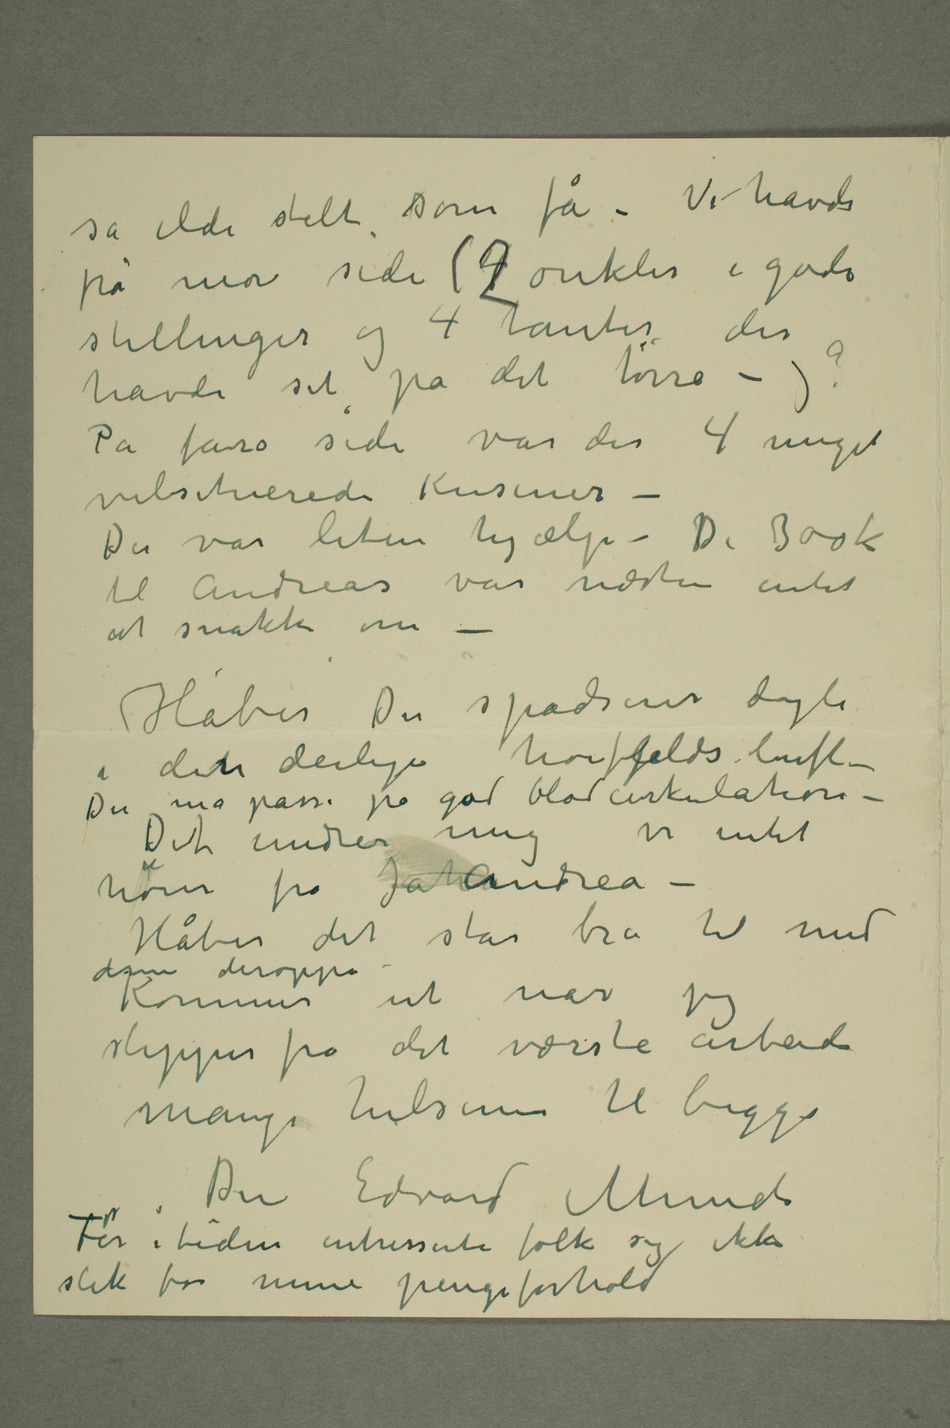 så ilde stelt som få – Vi havde
på mor side (2 onkler i gode
stillinger og 4 tanter der
havde sit på det tørre – )?
På fars side var der 4 meget
velsituerede Kusiner –
Der var liten hjælp – De 300 k
til Andreas var næsten intet
at snakke om –
Håber Du spadserer dagli
i den deilige høifjelds luft –
Du må passe på god blodcirkulation –
Det undrer mig vi intet
hører fra Andrea –
Håber det står bra til med
dem deroppe –
Kommer ut når jeg
slipper fra det værste arbeide
Mange hilsener til begge
Din Edvard Munch
Før i tiden intresserte folk sig ikke
slik for mine pengeforhold